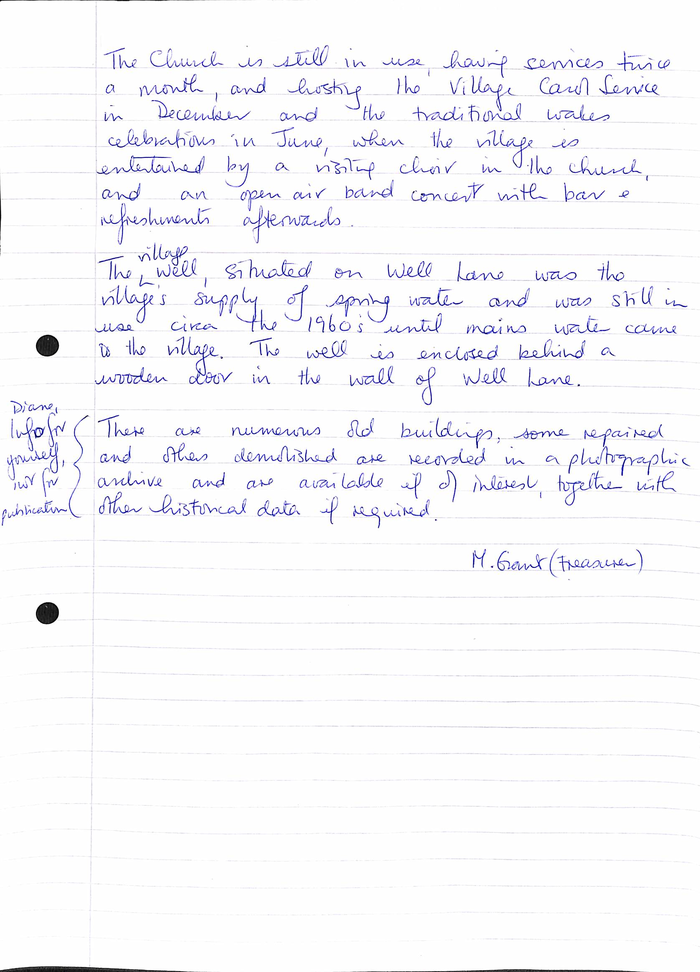 The Church is still in use, having services twice
a month, and hosting the Village Carol Service
in December and the traditional wakes
celebrations in June, when the village is
entertained by a visiting choir in the church,
and an open air band concert with bar &
refreshments afterwards.
village
The Well, situated on Well Lane was the
village's supply of spring water and was still in
use circa the 1960's until mains water came
to the village. The well is enclosed behind a
wooden door in the wall of Well Lane.
Diane,
Info for
yourself,
not for
publication
There are numerous old buildings, some repaired
and others demolished are recorded in a photographic
archive and are available if of interest, together with
other historical data if required.
M. Grant (Treasurer)